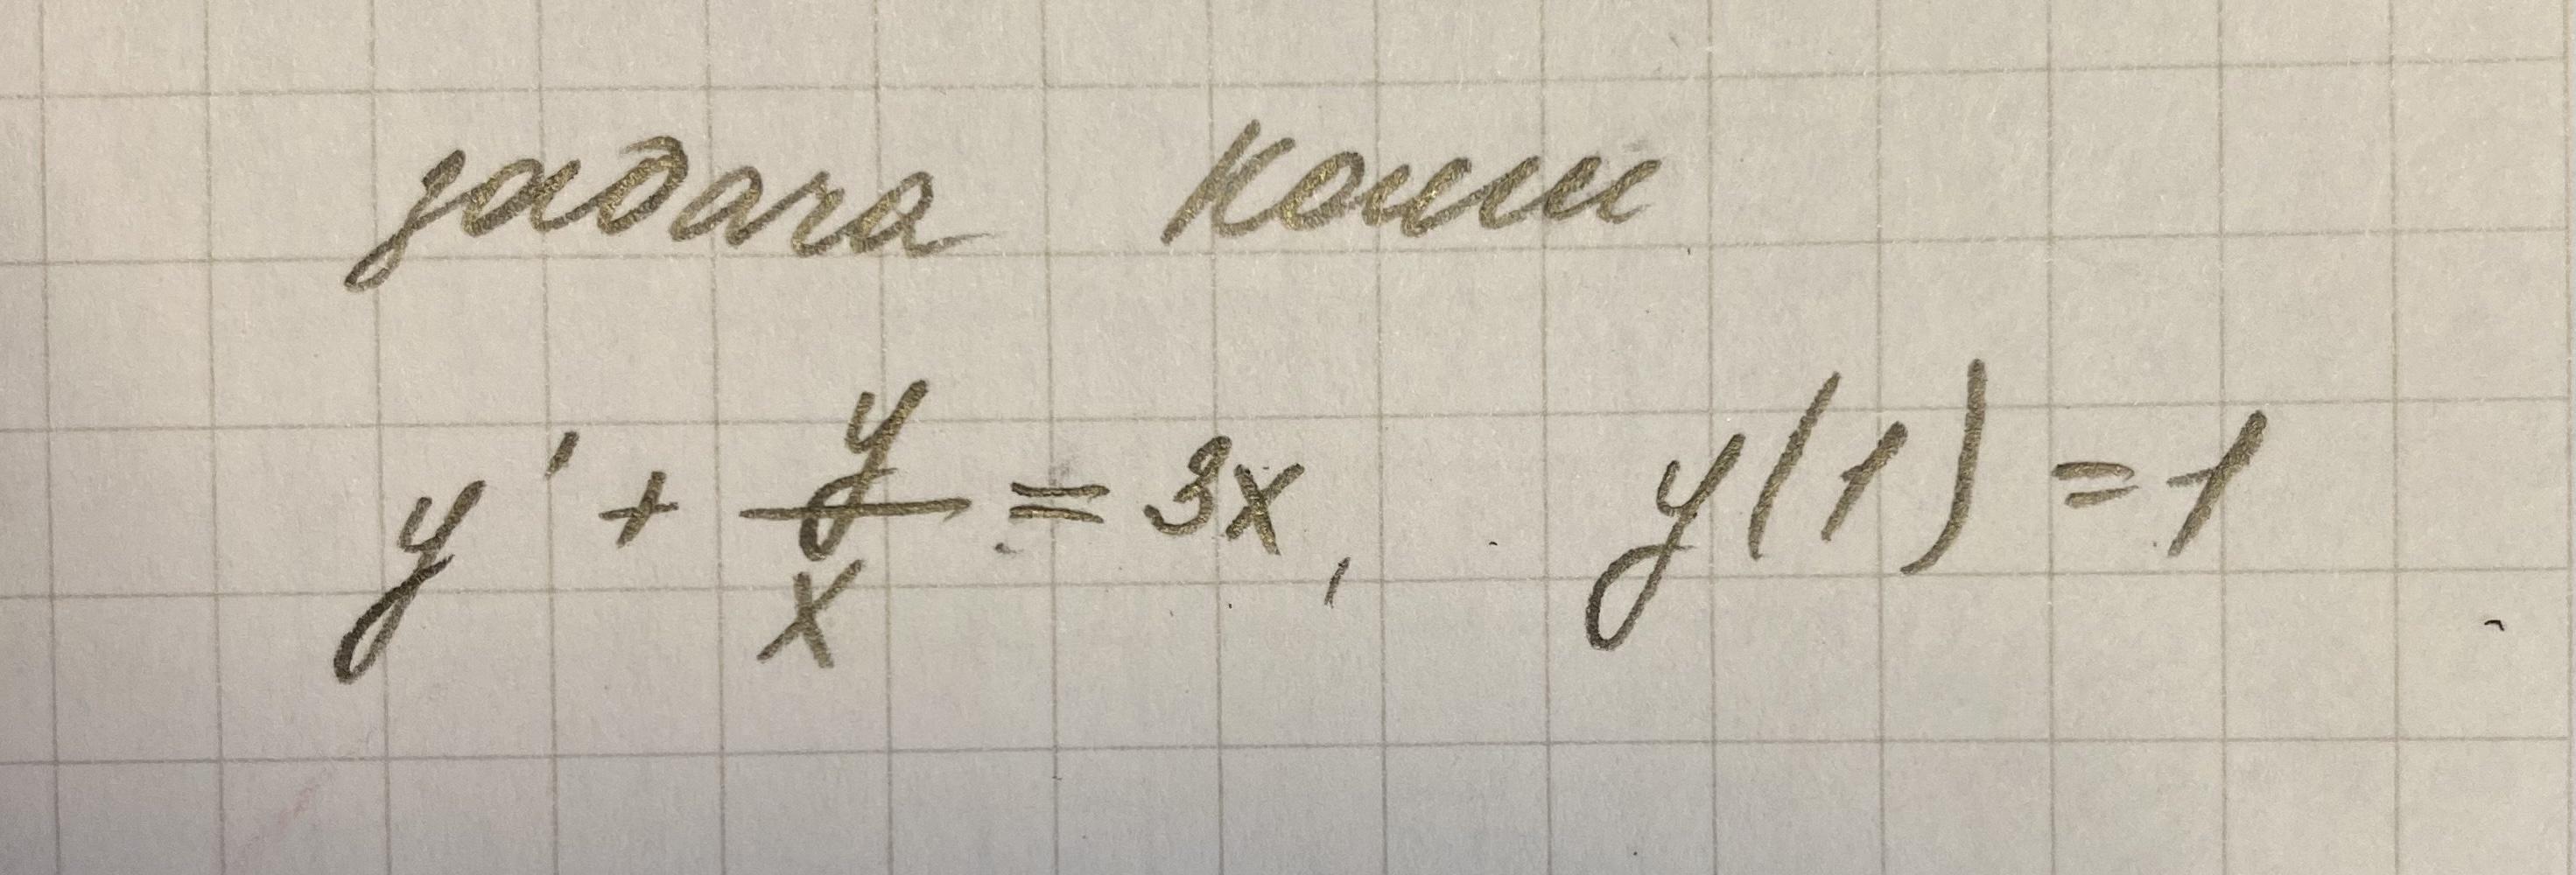 задача Коши
y' + y/x = 3x, y(1) = 1